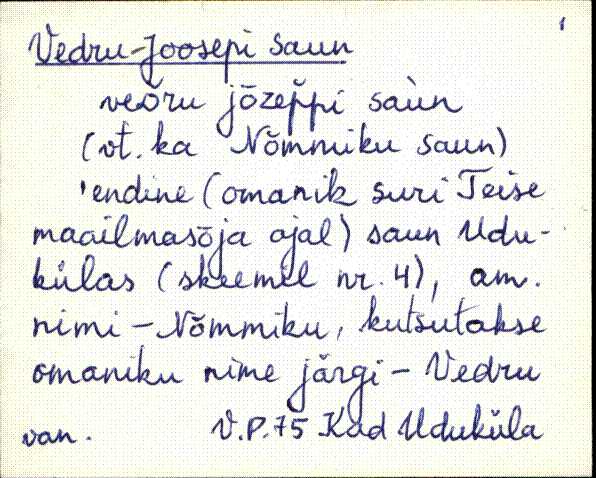 1
Vedru-Joosepi saun
veðru jōzep̆pi saùn
(vt. ka Nõmmiku saun)
'endine (omanik suri Teise
maailmasõja ajal) saun Udu-
külas (skeemil nr. 4), am.
nimi - Nõmmiku, kutsutakse
omaniku nime järgi - Vedru
van. V.P.75 Kad Uduküla